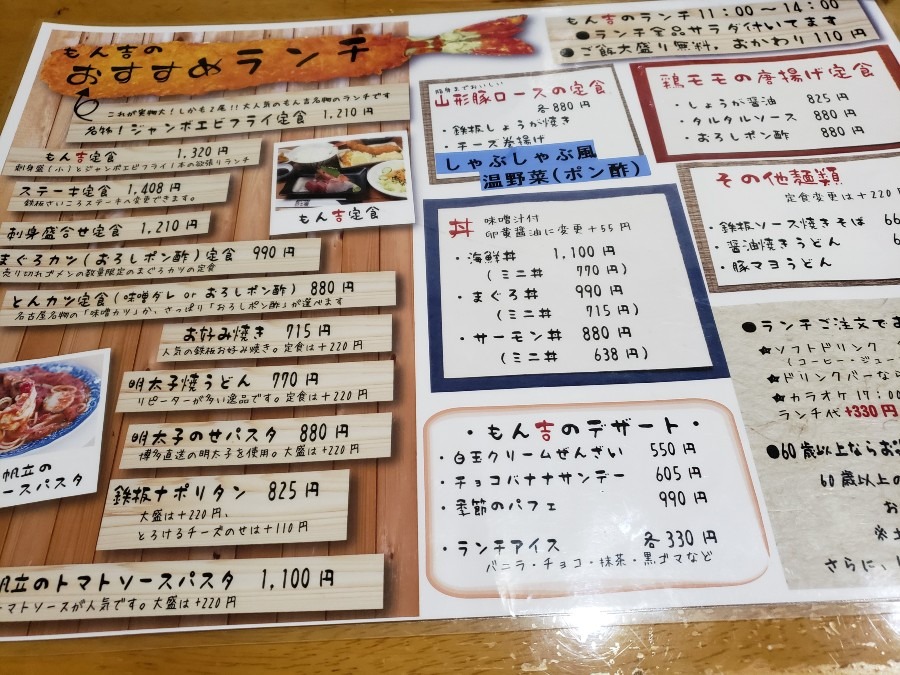 もん吉の
おすすめランチ
これが実物大！しかも2尾！！大人気のもん吉名物のランチです
名物！ジャンボエビフライ定食 1,210円
もん吉定食 1,320円
刺身盛(小)とジャンボエビフライ1本の欲張りランチ
ステーキ定食 1,408円
鉄板さいころステーキへ変更できます。
刺身盛合せ定食 1,210円
まぐろカツ(おろしポン酢)定食 990円
売り切れゴメンの数量限定のまぐろカツの定食
とんカツ定食(味噌ダレ or おろしポン酢) 880円
名古屋名物の「味噌カツ」か、さっぱり「おろしポン酢」が選べます
お好み焼き 715円
人気の鉄板お好み焼き。定食は+220円
明太子焼うどん 770円
リピーターが多い逸品です。定食は+220円
明太子のせパスタ 880円
博多直送の明太子を使用。大盛は+220円
鉄板ナポリタン 825円
大盛は+220円、
とろけるチーズのせは+110円
帆立のトマトソースパスタ 1,100円
トマトソースが人気です。大盛は+220円
もん吉定食
帆立の
ースパスタ
もん吉のランチ 11:00～14:00
●ランチ全品サラダ付いてます
●ご飯大盛り無料。おかわり 110円
脂身までおいしい
山形豚ロースの定食
各880円
・鉄板しょうが焼き
・チーズ巻揚げ
しゃぶしゃぶ風
温野菜(ポン酢)
鶏モモの唐揚げ定食
・しょうが醤油 825円
・タルタルソース 880円
・おろしポン酢 880円
丼 味噌汁付
卵黄醤油に変更+55円
・海鮮丼 1,100円
(ミニ丼 770円)
・まぐろ丼 990円
(ミニ丼 715円)
・サーモン丼 880円
(ミニ丼 638円)
その他麺類
定食変更は+220
・鉄板ソース焼きそば 66
・醤油焼きうどん 6
・豚マヨうどん
・もん吉のデザート・
・白玉クリームぜんざい 550円
・チョコバナナサンデー 605円
・季節のパフェ 990円
・ランチアイス 各330円
バニラ・チョコ・抹茶・黒ゴマなど
●ランチご注文でま
★ソフトドリンク
(コーヒー・ジュー
★ドリンクバーなら
★カラオケ17:00
ランチ代+330円
●60歳以上ならお
60歳以上の
お
※土
さらに、